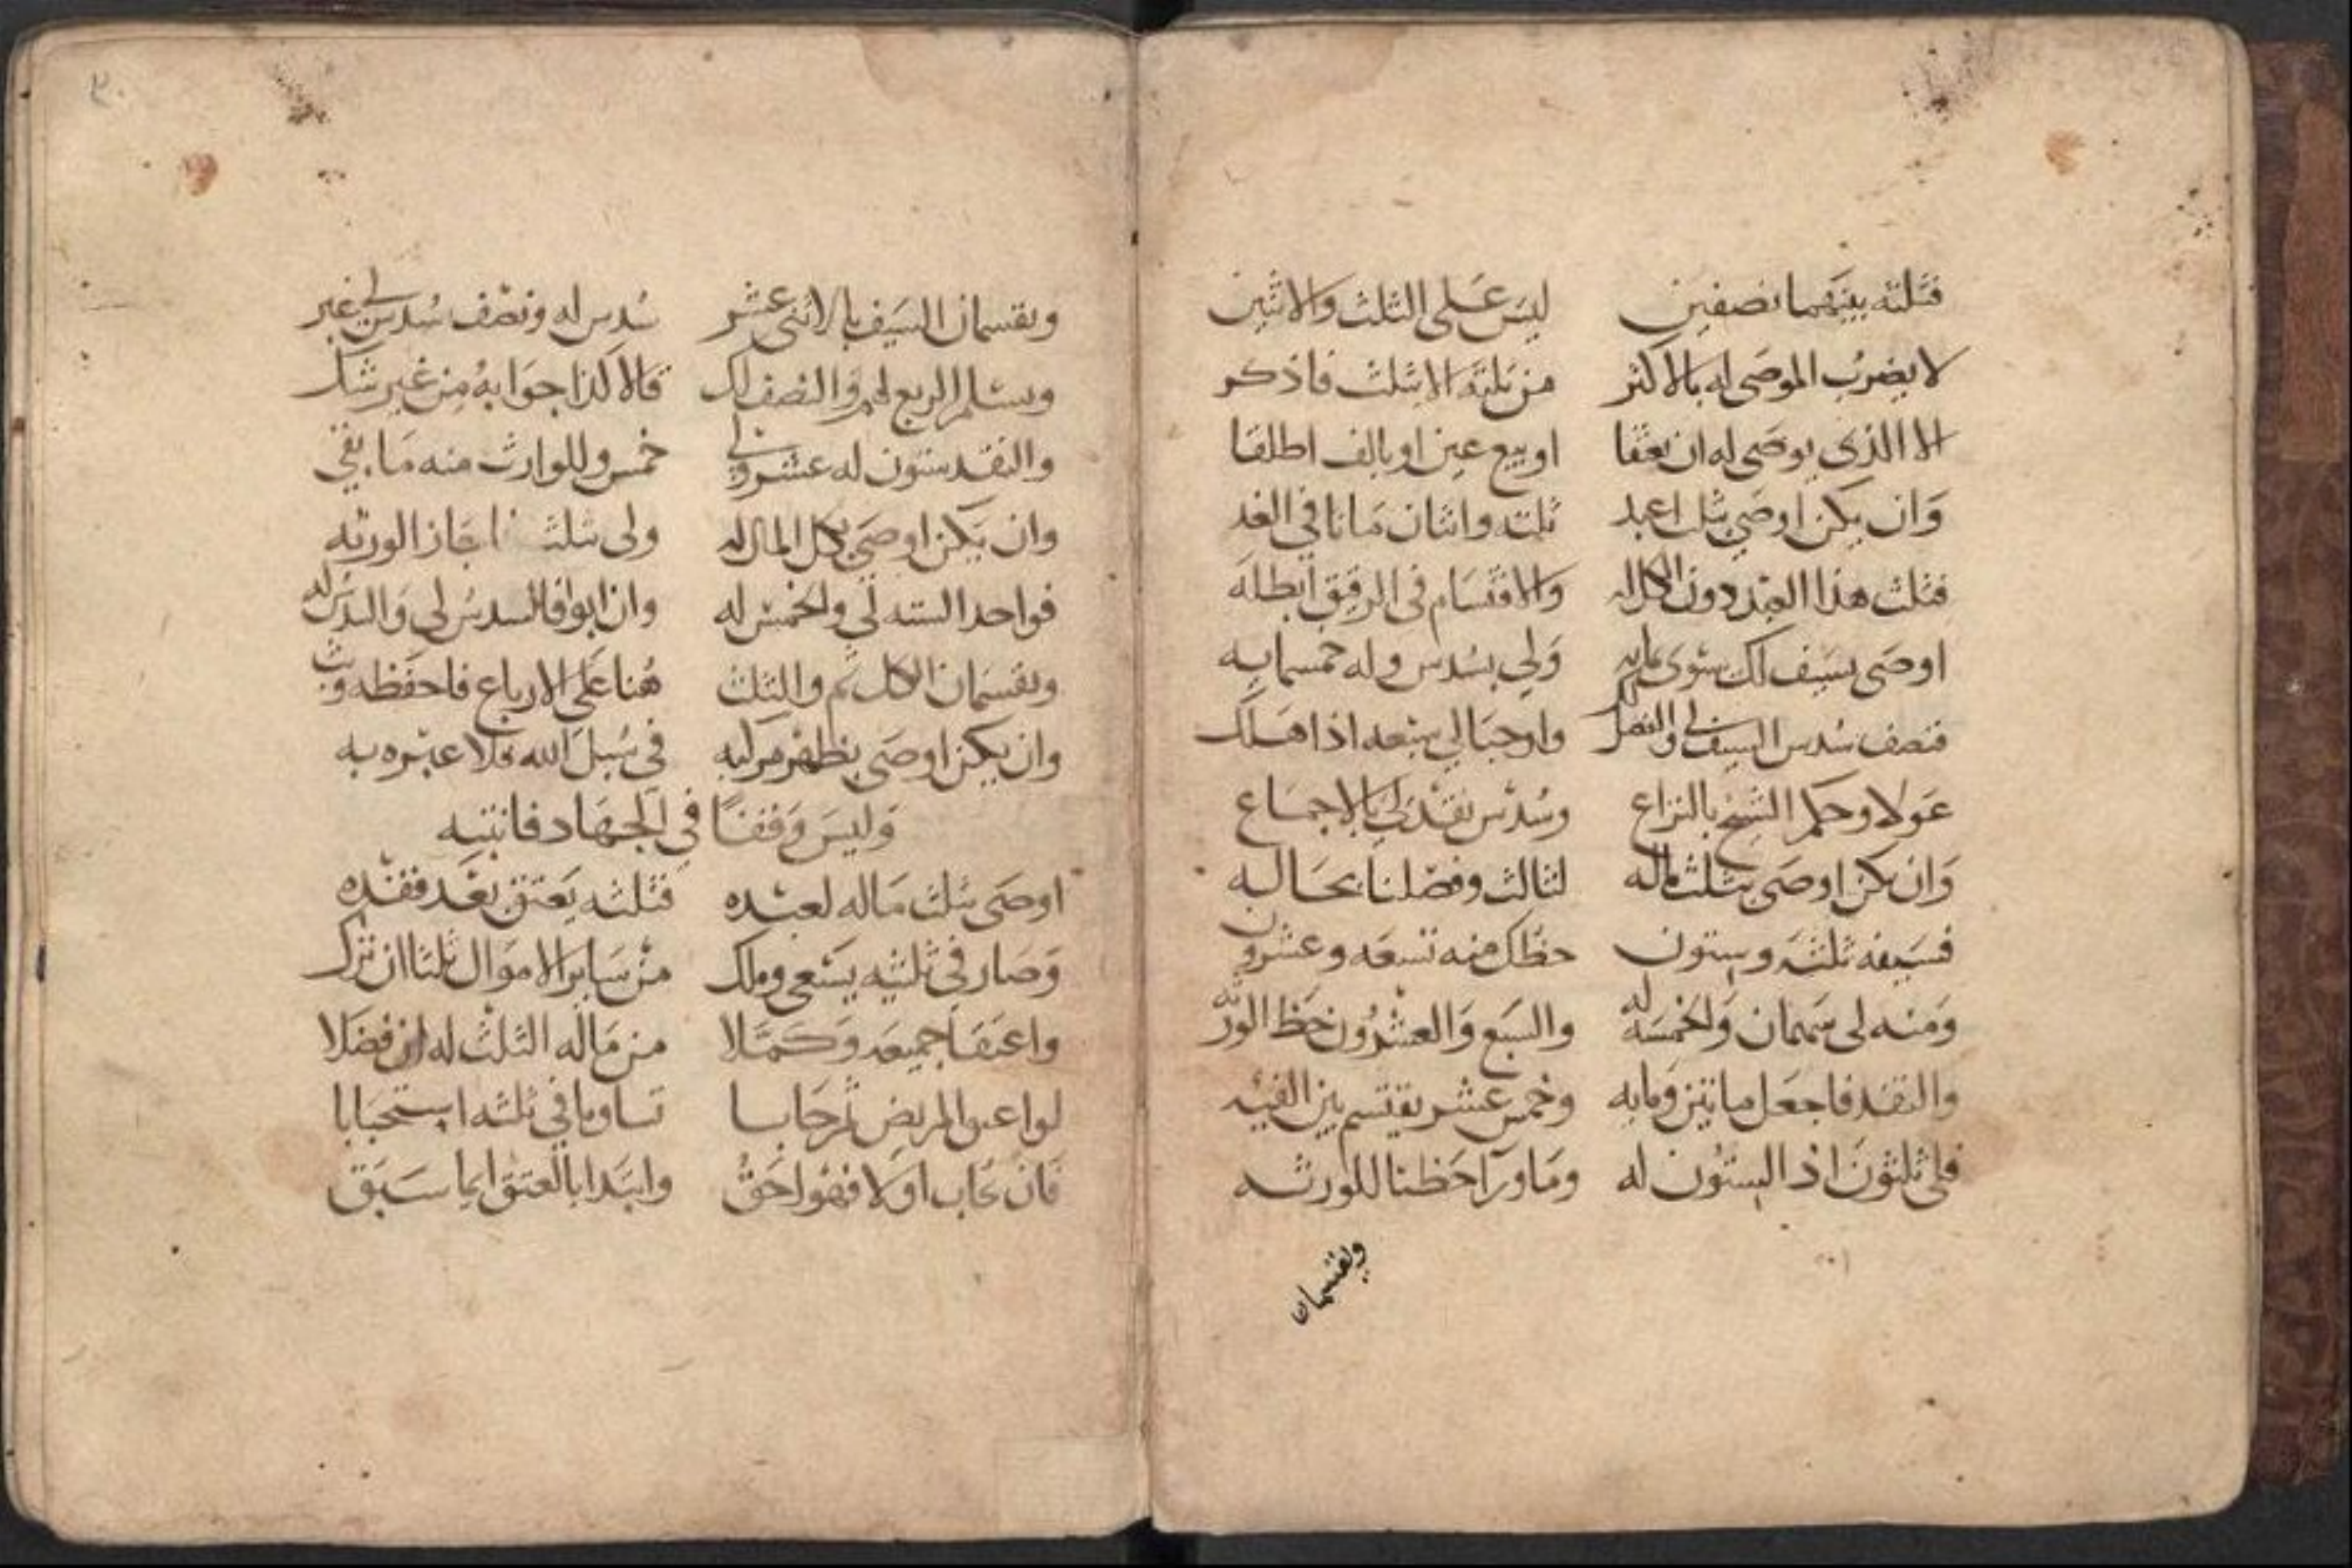 فثلثه بينهما نصفين ليس على الثلث والاثنين
لا يضرب الموصى له بالاكثر من ثلثه الا بثلث فاذكر
الا الذي يوصى له ان يعتقا او بيع عين او بالف اطلقا
وان يكن اوصى بثلث اعبد ثلثه واثنان ماتا في الغد
فثلث هذا العبد دون الكل له والاقتسام في الرقيق ابطله
اوصى بسيف لك سوى مايه ولي بسدس وله خمسمايه
فنصف سدس السيف لي والفضل لك واوجبا لي سبعه اذا هلك
عولا وحكم الشيخ بالنزاع وسدس نقد لي بالاجماع
وان يكن اوصى بثلث ماله لثالث وفضلنا بحاله
فسيفه ثلثه وستون حظك منه تسعه وعشرون
ومنه لي سهمان والخمسه له والسبع والعشرون حظ الورثه
والنقد فاجعل مايتين ومايه وخمس عشر يقتسم بين الفيه
فلي ثلثون اذ الستون له وما ورا حظنا للورثه
ويقسمان
ويقسمان السيف بالاثنى عشر سدس له ونصف سدس لي غبر
ويسلم الربع لهم والنصف لك قالا كذا جوابه من غير شك
والنقد ستون له عشر ولي خمس وللوارث منه ما بقي
وان يكن اوصى بكل المال له ولى بثلث اجاز الورثه
فواحد السته لي والخمس له وان ابوا فالسدس لي والسدس له
ويقسمان الكل ثم والثلث هنا على الارباع فاحفظه وبث
وان يكن اوصى بظهر مركبه في سبل الله فلا عبره به
وليس وقفا في الجهاد فانتبه
اوصى بثلث ماله لعبده فثلثه يعتق بعد فقده
وصار في ثلثيه يسعى وملك من ساير الاموال ثلثا ان ترك
واعتقا جميعه وكملا من ماله الثلث له ان فضلا
لو اعتق المريض ثم حابا تساويا في ثلثه استحبابا
فان يحاب اولا فهو احق وابتدا بالعتق ايما سبق